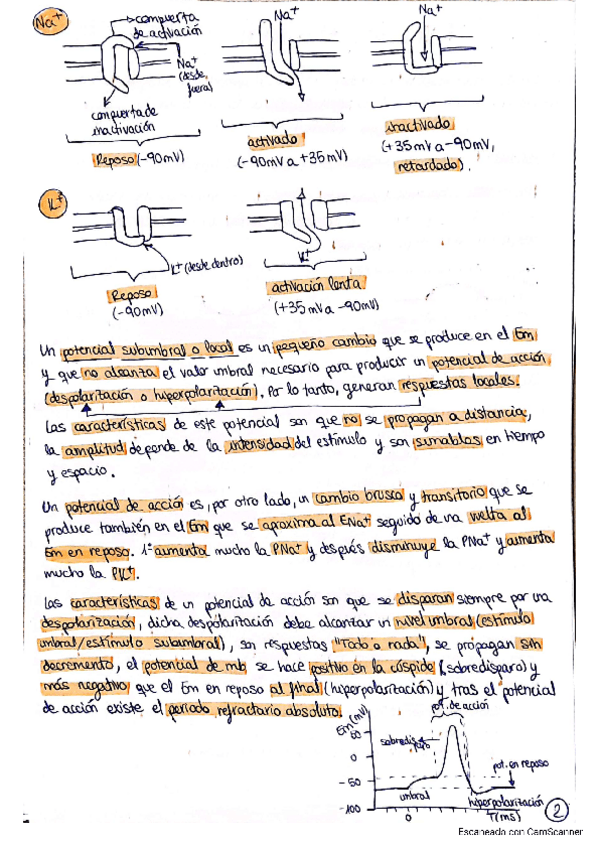 Na+
compuerta
de activación
Na+
(desde
fuera)
compuerta de
inactivación
Reposo (-90mV)
Na+
activado
(-90mV a +35mV)
Na+
inactivado
(+35mV a -90mV,
retardado).
K+
K+ (desde dentro)
Reposo
(-90mV)
K+
activación lenta
(+35mV a -90mV)
Un potencial subumbral o local es un pequeño cambio que se produce en el Em
y que no alcanza el valor umbral necesario para producir un potencial de acción
(despolarización o hiperpolarización). Por lo tanto, generan respuestas locales.
Las características de este potencial son que no se propagan a distancia,
la amplitud depende de la intensidad del estímulo y son sumables en tiempo
y espacio.
Un potencial de acción es, por otro lado, un cambio brusco y transitorio que se
produce también en el Em que se aproxima al ENa+ seguido de una vuelta al
Em en reposo. 1º aumenta mucho la PNa+ y después disminuye la PNa+ y aumenta
mucho la PK+.
Las características de un potencial de acción son que se disparan siempre por una
despolarización, dicha despolarización debe alcanzar un nivel umbral (estímulo
umbral/estímulo subumbral), son respuestas "Todo o nada", se propagan sin
decremento, el potencial de mb se hace positivo en la cúspide (sobredisparo) y
más negativo que el Em en reposo al final (hiperpolarización) y tras el potencial
de acción existe el periodo refractario absoluto.
Em (mV)
pot. de acción
50
sobredisparo
0
pot. en reposo
-50
umbral
hiperpolarización
-100
0
T(ms)
2
Escaneado con CamScanner